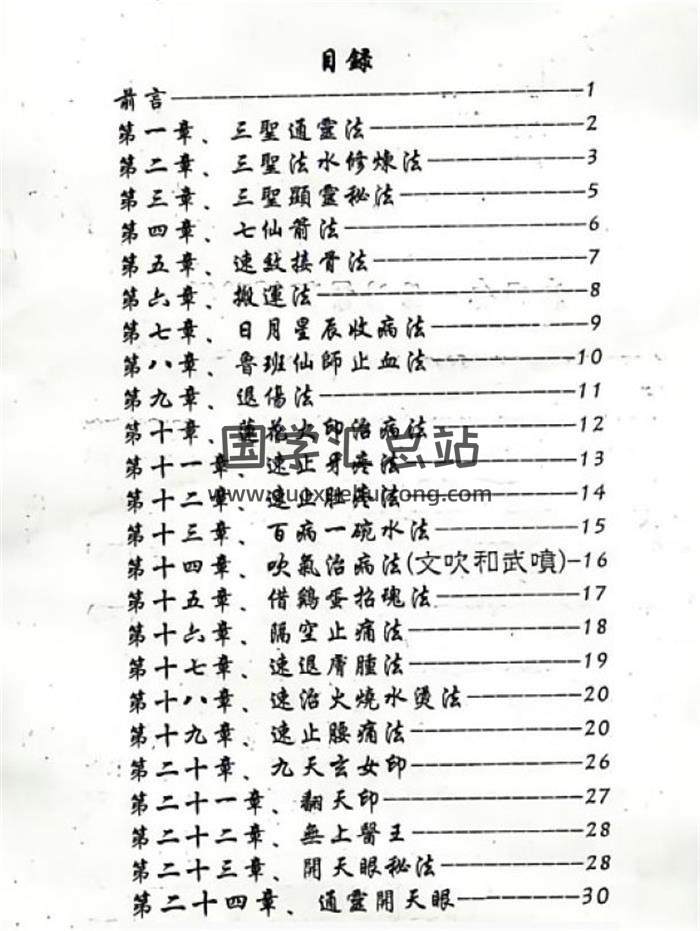 目錄
前言------------------------------1
第一章、三聖通靈法---------------2
第二章、三聖法水修煉法-----------3
第三章、三聖顯靈秘法-------------5
第四章、七仙箭法-----------------6
第五章、速紋接骨法---------------7
第六章、搬運法-------------------8
第七章、日月星辰收病法-----------9
第八章、魯班仙師止血法----------10
第九章、退傷法------------------11
第十章、蓮花火印治病法----------12
国学汇总站
第十一章、速止牙疼法------------13
第十二章、速止肚疼法------------14
第十三章、百病一碗水法----------15
第十四章、吹氣治病法(文吹和武噴)-16
第十五章、借鷄蛋招魂法----------17
第十六章、隔空止痛法------------18
第十七章、速退膚腫法------------19
第十八章、速治火燒水燙法--------20
第十九章、速止腰痛法------------20
第二十章、九天玄女印------------26
第二十一章、翻天印--------------27
第二十二章、無上醫王------------28
第二十三章、開天眼秘法----------28
第二十四章、通靈開天眼----------30